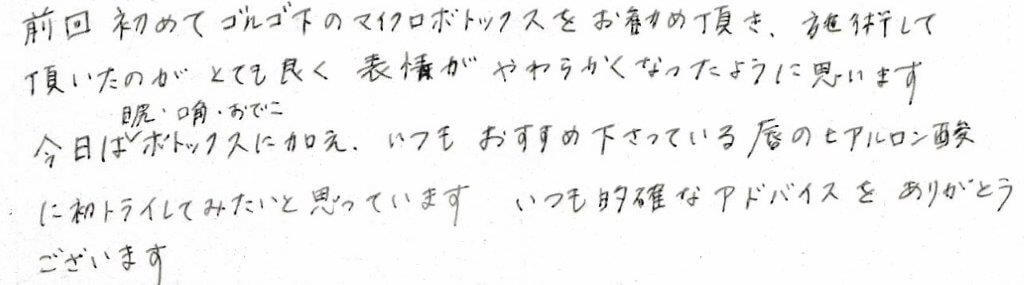 前回 初めて ゴルゴ下の マイクロボトックスを お勧め頂き、施術して
頂いたのが とても良く 表情が やわらかくなったように思います
眉尻・口角・おでこ
今日は ボトックスに加え、いつも おすすめ下さっている 唇の ヒアルロン酸
に初トライしてみたいと思っています いつも的確な アドバイスを ありがとう
ございます